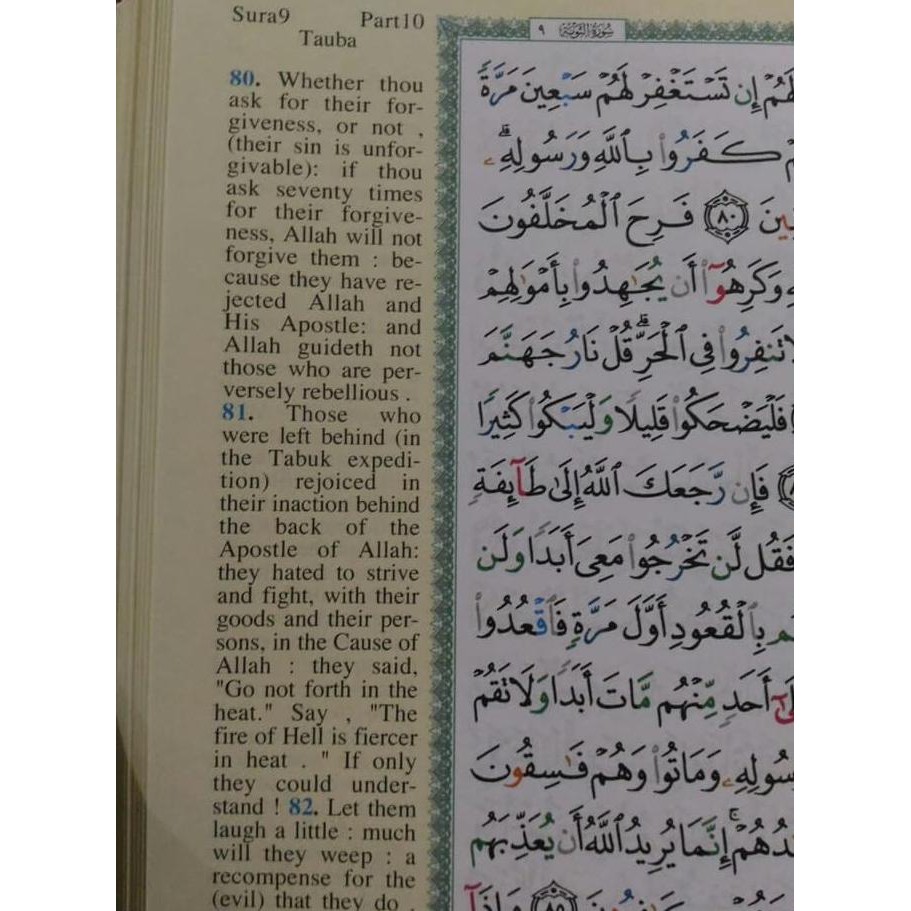 Sura9 Part10
Tauba
80. Whether thou
ask for their for-
giveness, or not ,
(their sin is unfor-
givable): if thou
ask seventy times
for their forgive-
ness, Allah will not
forgive them : be-
cause they have re-
jected Allah and
His Apostle: and
Allah guideth not
those who are per-
versely rebellious .
81. Those who
were left behind (in
the Tabuk expedi-
tion) rejoiced in
their inaction behind
the back of the
Apostle of Allah:
they hated to strive
and fight, with their
goods and their per-
sons, in the Cause of
Allah : they said,
"Go not forth in the
heat." Say , "The
fire of Hell is fiercer
in heat . " If only
they could under-
stand ! 82. Let them
laugh a little : much
will they weep : a
recompense for the
(evil) that they do .
سُورَةُ التَّوْبَةِ ٩
لَهُمْ إِن تَسْتَغْفِرْ لَهُمْ سَبْعِينَ مَرَّةً
كَفَرُوا۟ بِٱللَّهِ وَرَسُولِهِۦ ۗ
٨٠ فَرِحَ ٱلْمُخَلَّفُونَ
وَكَرِهُوٓا۟ أَن يُجَـٰهِدُوا۟ بِأَمْوَٰلِهِمْ
تَنفِرُوا۟ فِى ٱلْحَرِّ ۗ قُلْ نَارُ جَهَنَّمَ
فَلْيَضْحَكُوا۟ قَلِيلًا وَلْيَبْكُوا۟ كَثِيرًا
فَإِن رَّجَعَكَ ٱللَّهُ إِلَىٰ طَآئِفَةٍ
فَقُل لَّن تَخْرُجُوا۟ مَعِىَ أَبَدًا وَلَن
بِٱلْقُعُودِ أَوَّلَ مَرَّةٍ فَٱقْعُدُوا۟
أَحَدٍ مِّنْهُم مَّاتَ أَبَدًا وَلَا تَقُمْ
وَمَاتُوا۟ وَهُمْ فَـٰسِقُونَ
إِنَّمَا يُرِيدُ ٱللَّهُ أَن يُعَذِّبَهُم